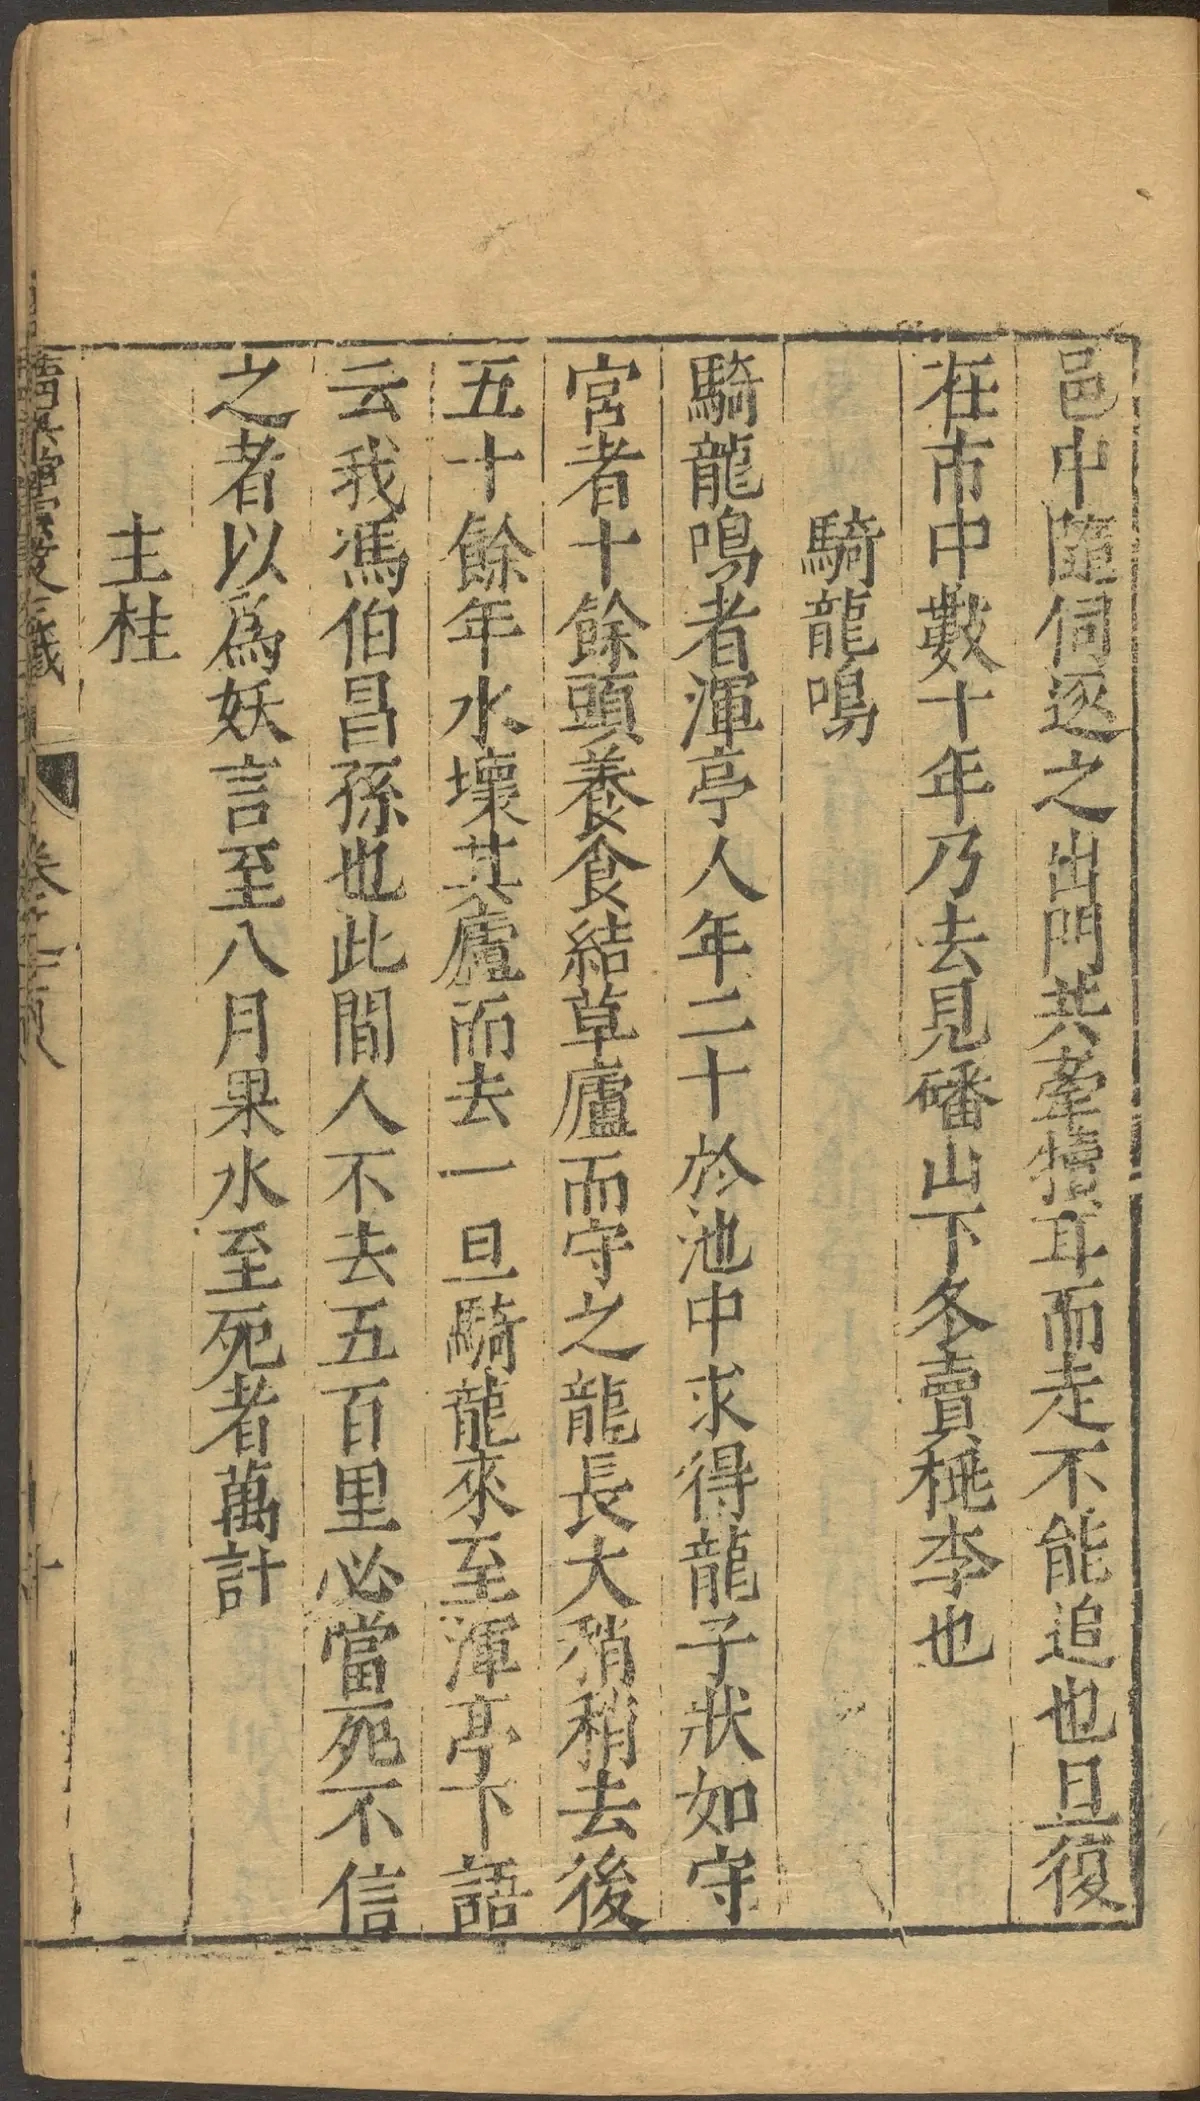 邑中隨伺逐之出門共牽犢耳而走不能追也旦復
在市中數十年乃去見磻山下冬賣桃李也
騎龍鳴
騎龍鳴者渾亭人年二十於池中求得龍子狀如守
宮者十餘頭養食結草廬而守之龍長大稍稍去後
五十餘年水壞其廬而去一旦騎龍來至渾亭下語
云我馮伯昌孫也此間人不去五百里必當死不信
之者以為妖言至八月果水至死者萬計
主柱